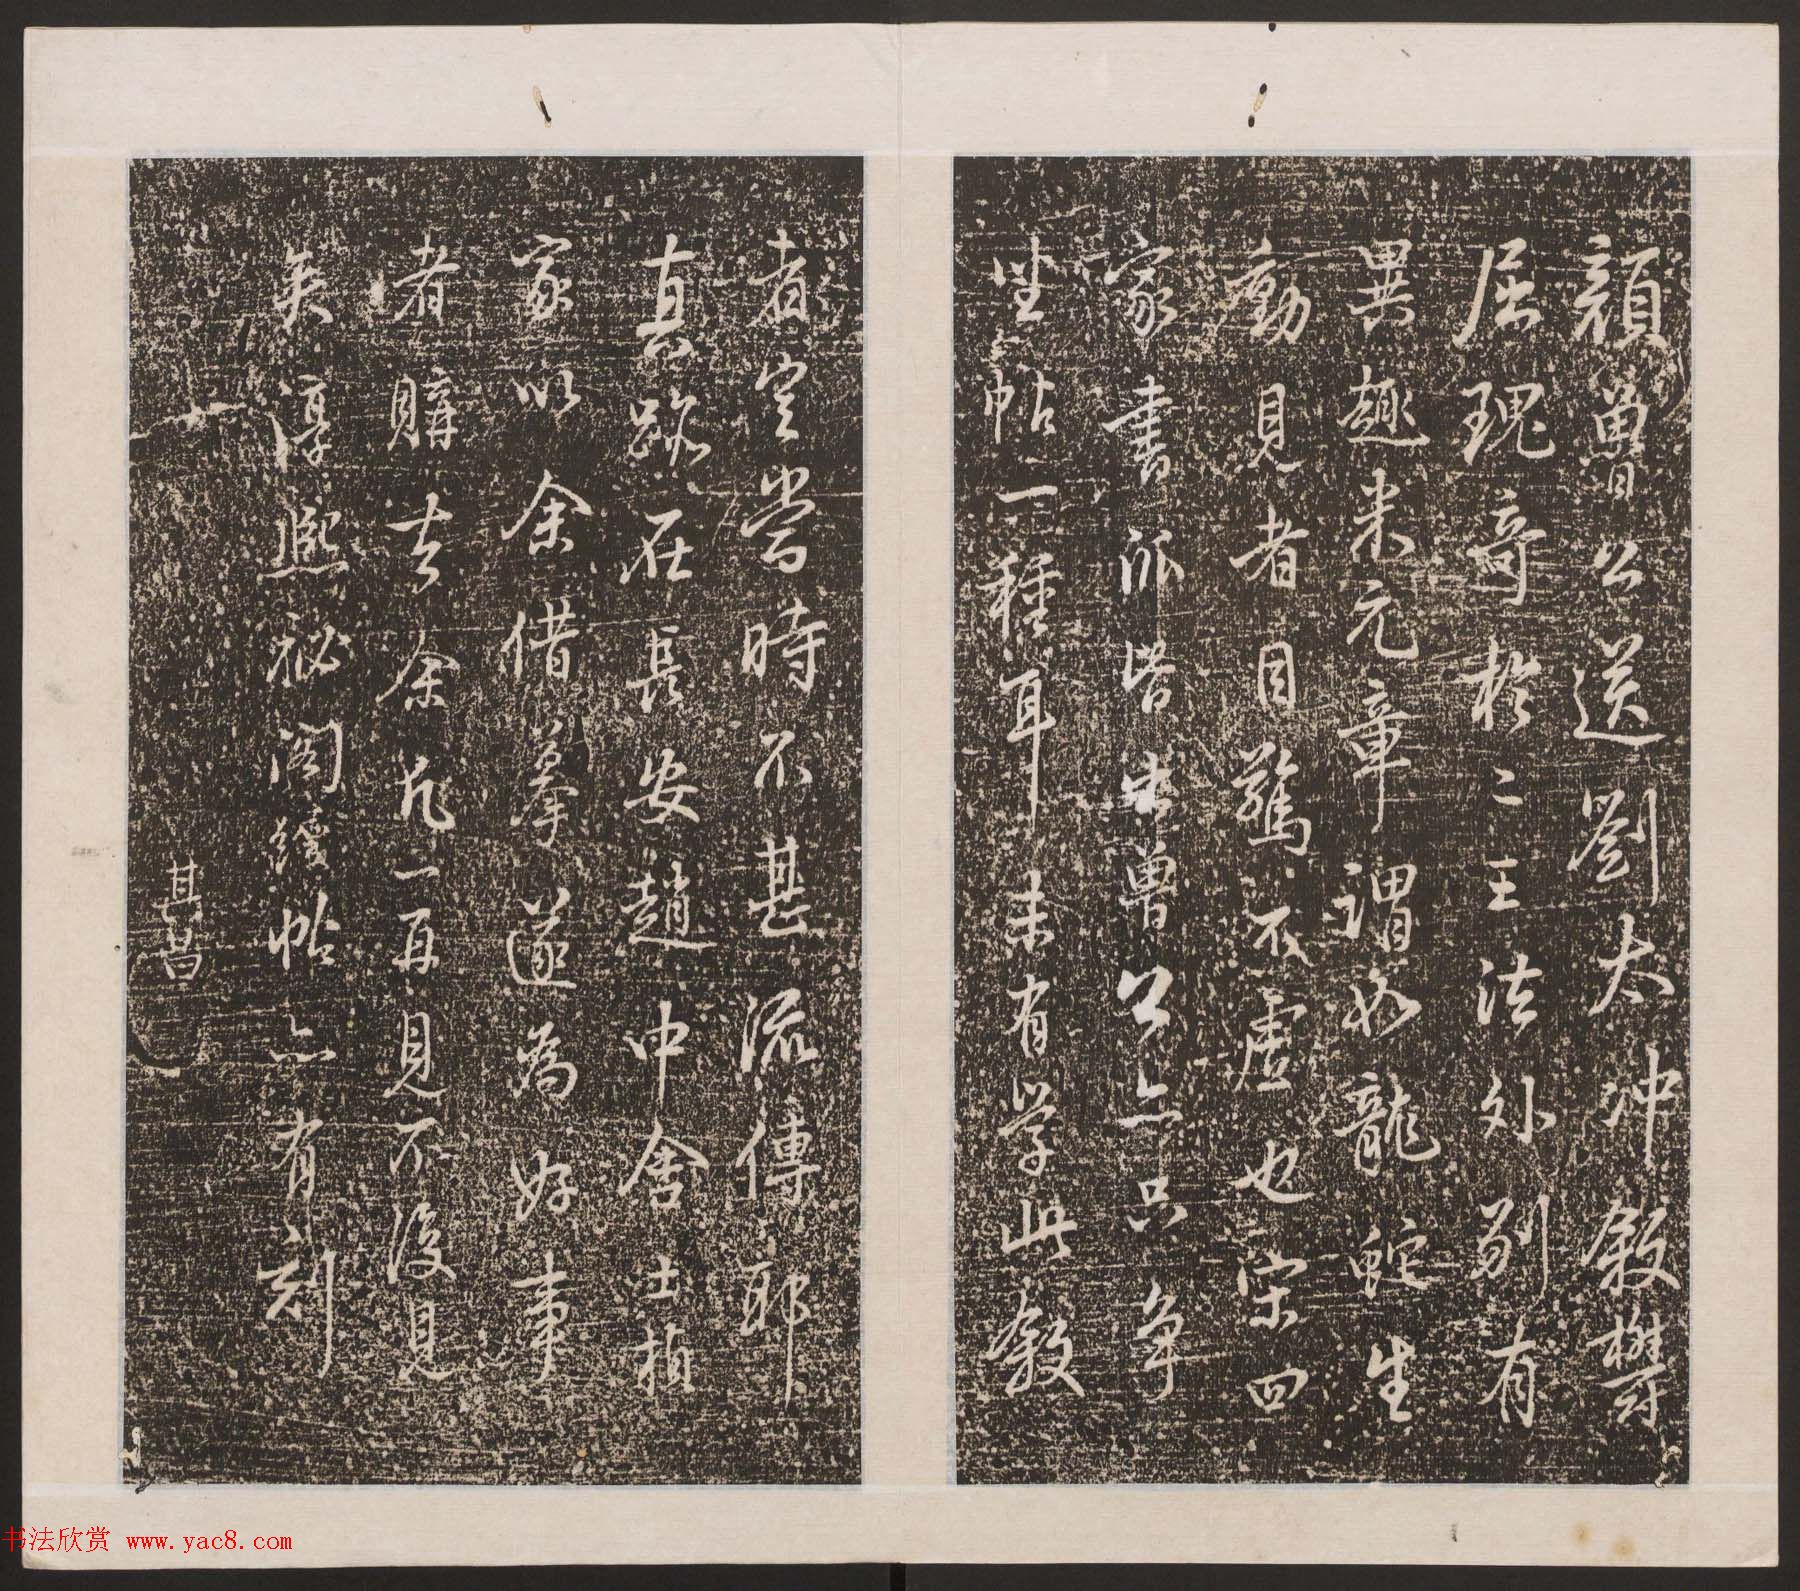 顏魯公送劉太冲敘欝
屈瑰奇於二王法外別有
異趣米元章謂如龍蛇生
動見者目驚不虛也宋四
家書派皆出魯公亦只爭
坐帖一種耳未有學此敘
者豈當時不甚流傳耶
真跡在長安趙中舍士禎
家以余借摹遂為好事
者購去余凡一再見不復見
矣淳熙祕閣續帖亦有刻
其昌
书法欣赏 www.yac8.com